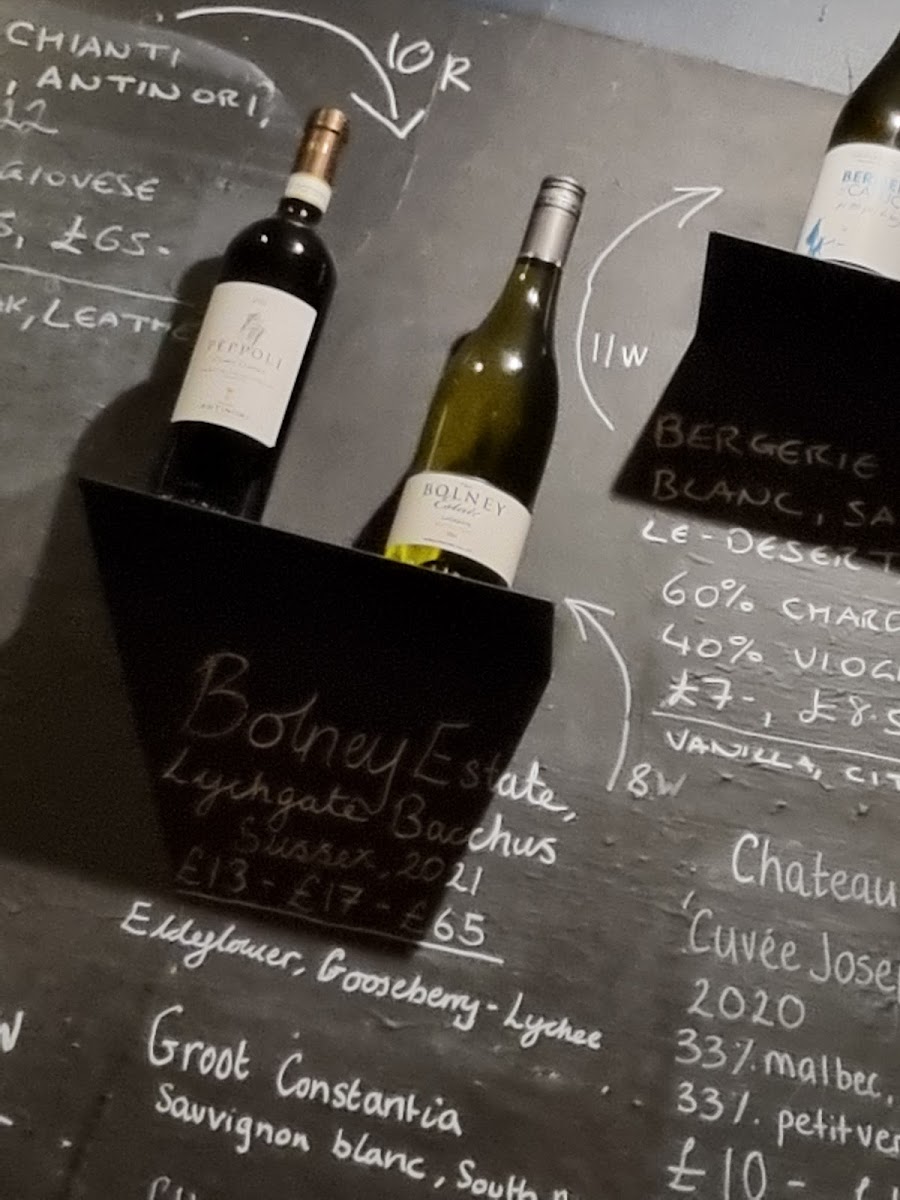 CHIANTI
, ANTINORI,
22
GIOVESE
5, £65.
K, LEATHE
10 R
PEPPOLI
ANTINORI
BOLNEY
Estate
11/W
BERGERIE
BLANC, SA
LE-DESERT,
60% CHARD
40% VIOG
£7-, £8.5
VANILLA, CIT
8W
Bolney Estate,
Lychgate Bacchus
Sussex, 2021
£13 - £17 - £65
Eldeflower, Gooseberry - Lychee
Groot Constantia
Sauvignon blanc, South
Chateau
'Cuvée Jose
2020
33% malbec,
33% petit ver
£10 -